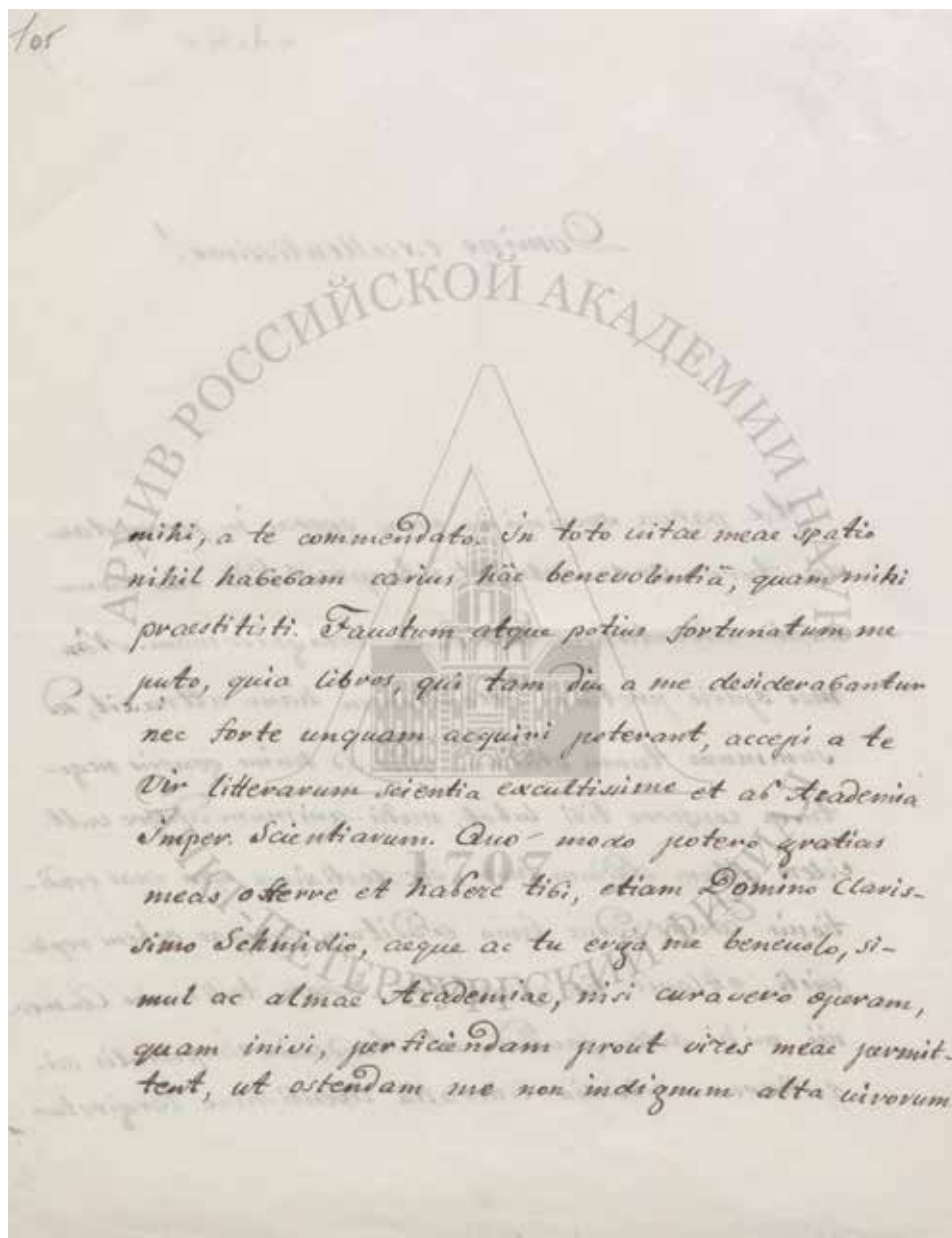 105
mihi, a te commendato. In toto uitae meae spatio
nihil habebam carius hâc benevolentiâ, quam mihi
praestitisti. Faustum atque potius fortunatum me
puto, quia libros, qui tam diu a me desiderabantur
nec forte unquam acquiri poterant, accepi a te
Vir litterarum scientia excultissime et ab Academia
Imper. Scientiarum. Quo-modo potero gratias
meas offerre et habere tibi, etiam Domino Claris-
simo Schmidio, aeque ac tu erga me beneuolo, si-
mul ac almae Academiae, nisi curavero operam,
quam inivi, perficiendam prout vires meae permit-
tent, ut ostendam me non indignum alta uirorum
АРХИВ РОССИЙСКОЙ АКАДЕМИИ НАУК
1707
САНКТ-ПЕТЕРБУРГСКИЙ ФИЛИАЛ